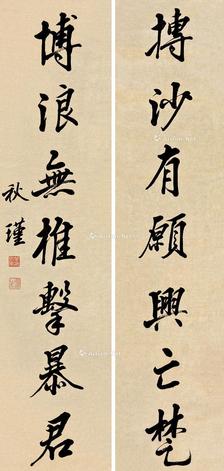 摶沙有願興亡楚
博浪無椎擊暴君
秋瑾